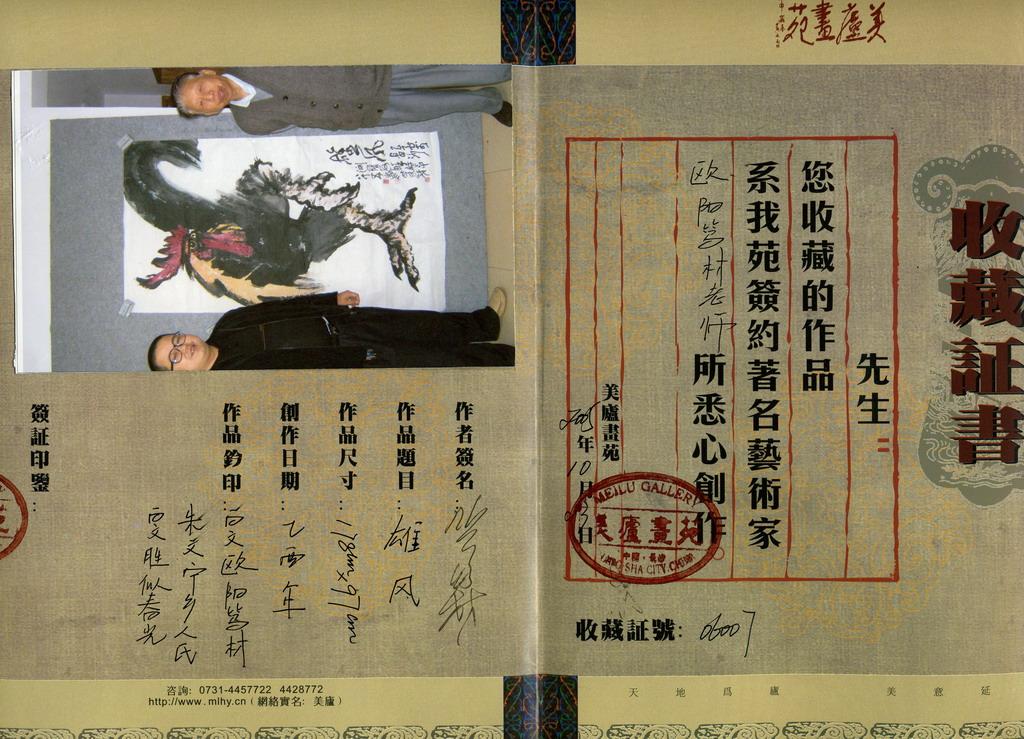 美廬畫苑
收藏証書
先生：
您收藏的作品
系我苑簽約著名藝術家
欧阳笃材老师所悉心創作。
美廬畫苑
2005年10月03日
MEILU GALLERY
美廬畫苑
中國·長沙
CHANGSHA CITY.CHINA
收藏証號：06007
延意美 廬爲地天
作者簽名：
作品題目：雄风
作品尺寸：178cm×97cm
創作日期：乙酉年
作品鈐印：白文欧阳笃材
朱文宁乡人民
胜似春光
簽証印鑒：
咨詢: 0731-4457722 4428772
http://www.mlhy.cn ( 網絡實名: 美廬 )